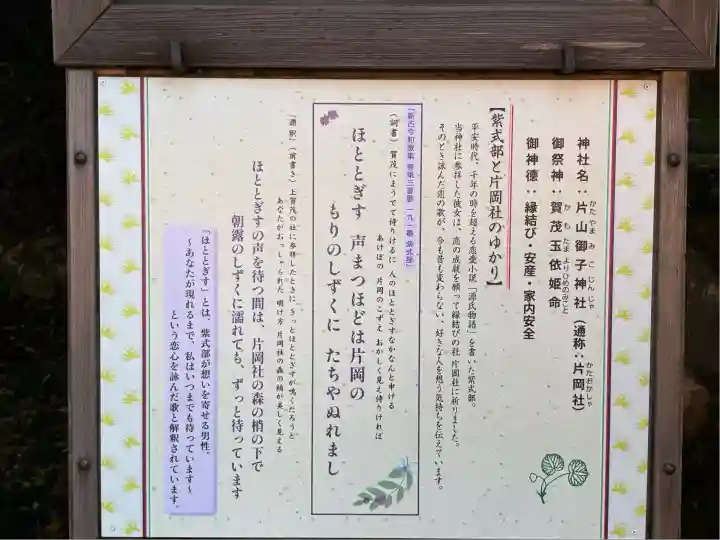 神社名：片山御子神社（通称：片岡社）
かたやまみこじんじゃ
かたおかしゃ
御祭神：賀茂玉依姫命
かもたまよりひめのみこと
御神徳：縁結び・安産・家内安全
【紫式部と片岡社のゆかり】
平安時代、千年の時を超える恋愛小説「源氏物語」を書いた紫式部。
当神社に参拝した彼女は、恋の成就を願って縁結びの社 片岡社に祈りました。
そのとき詠んだ恋の歌が、今も昔も変わらない、好きな人を想う気持ちを伝えています。
「新古今和歌集 巻第三 夏歌 一九一番 紫式部」
（詞書）賀茂にまうでて侍りけるに 人のほととぎすなかなんと申ける
あけぼの 片岡のこずえ おかしく見え侍りければ
ほととぎす 声まつほどは片岡の
もりのしずくに たちやぬれまし
「通釈」（前書き）上賀茂の社に参拝したときに、きっとほととぎすが鳴くだろうと
あなたがおっしゃられた 明け方 片岡社の森の梢が美しく見える
ほととぎすの声を待つ間は、片岡社の森の梢の下で
朝露のしずくに濡れても、ずっと待っています
「ほととぎす」とは、紫式部が想いを寄せる男性。
～あなたが現れるまで、私はいつまでも待っています～
という恋心を詠んだ歌と解釈されています。